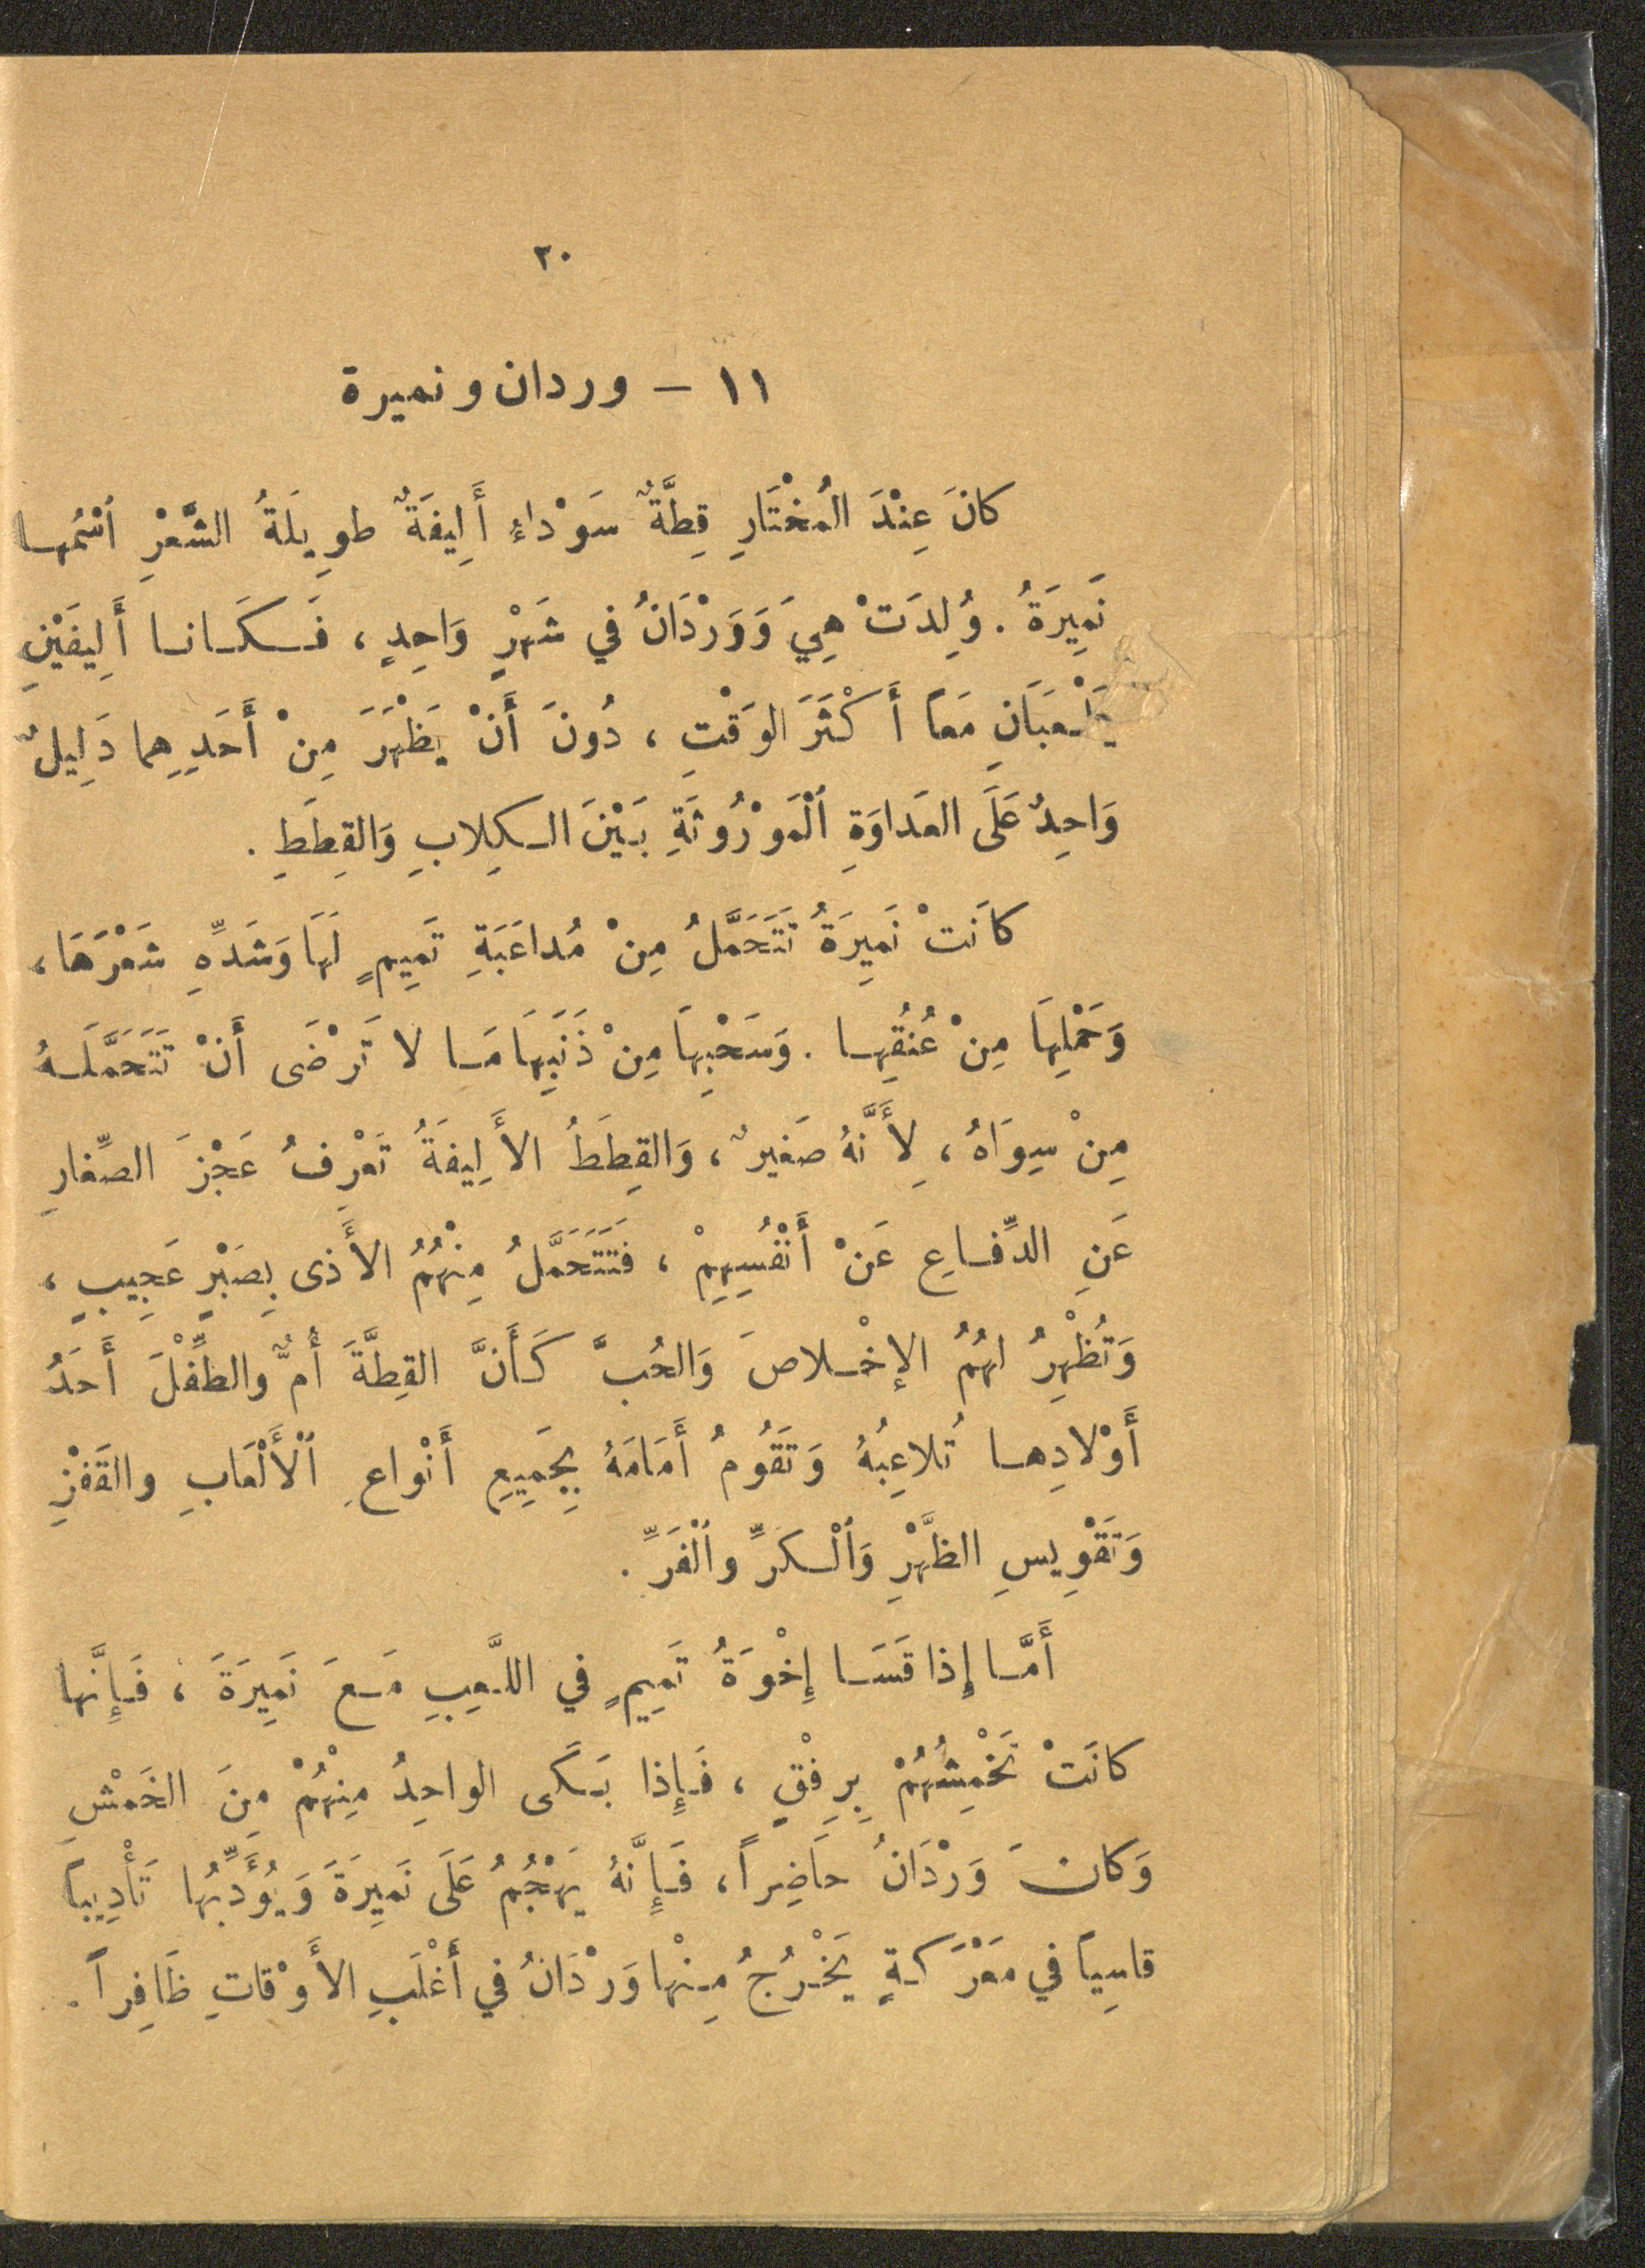 ٢٠
١١ – وردان ونميرة
كانَ عِنْدَ المُخْتَارِ قِطَّةٌ سَوْداءُ أَلِيفَةٌ طوِيلَةُ الشَّعْرِ ٱسْمُها
نَمِيرَةُ. وُلِدَتْ هِيَ وَوَرْدَانُ في شَهْرٍ وَاحِدٍ ، فَكَانا أَلِيفَيْنِ
يَلْعَبَانِ مَعاً أَكْثَرَ الوَقْتِ ، دُونَ أَنْ يَظْهَرَ مِنْ أَحَدِهِما دَلِيلٌ
وَاحِدٌ عَلَى العَداوَةِ ٱلْمَوْرُوثَةِ بَيْنَ الكِلابِ وَالقِطَطِ .
كانَتْ نَمِيرَةُ تَتَحَمَّلُ مِنْ مُداعَبَةِ تَمِيمٍ لَهَا وَشَدِّهِ شَعْرَهَا ،
وَحَمْلِهَا مِنْ عُنُقِها . وَسَحْبِهَا مِنْ ذَنَبِهَا مَا لا تَرْضَى أَنْ تَتَحَمَّلَهُ
مِنْ سِوَاهُ ، لِأَنَّهُ صَغيرٌ ، وَالقِطَطُ الأَلِيفَةُ تَعْرِفُ عَجْزَ الصِّغارِ
عَنِ الدِّفاعِ عَنْ أَنْفُسِهِمْ ، فَتَتَحَمَّلُ مِنْهُمُ الأَذى بِصَبْرٍ عَجِيبٍ ،
وَتُظْهِرُ لهُمُ الإخْلاصَ وَالحُبَّ كَأَنَّ القِطَّةَ أُمٌّ والطِّفْلَ أَحَدُ
أَوْلادِها تُلاعِبُهُ وَتَقُومُ أَمَامَهُ بِجَمِيعِ أَنْواعِ ٱلْأَلْعَابِ والقَفْزِ
وَتَقْوِيسِ الظَّهْرِ وَٱلْكَرِّ وٱلْفَرِّ .
أَمَّا إِذا قَسَا إِخْوَةُ تَمِيمٍ في اللَّعِبِ مَعَ نَمِيرَةَ ، فَإِنَّها
كانَتْ تَخْمِشُهُمْ بِرِفْقٍ ، فَإِذا بَكَى الواحِدُ مِنْهُمْ مِنَ الخَمْشِ
وَكانَ وَرْدَانُ حَاضِراً ، فَإِنَّهُ يَهْجُمُ عَلَى نَمِيرَةَ وَيُؤَدِّبُها تَأْدِيباً
قاسِياً في مَعْرَكَةٍ يَخْرُجُ مِنْها وَرْدَانُ في أَغْلَبِ الأَوْقاتِ ظَافِراً .